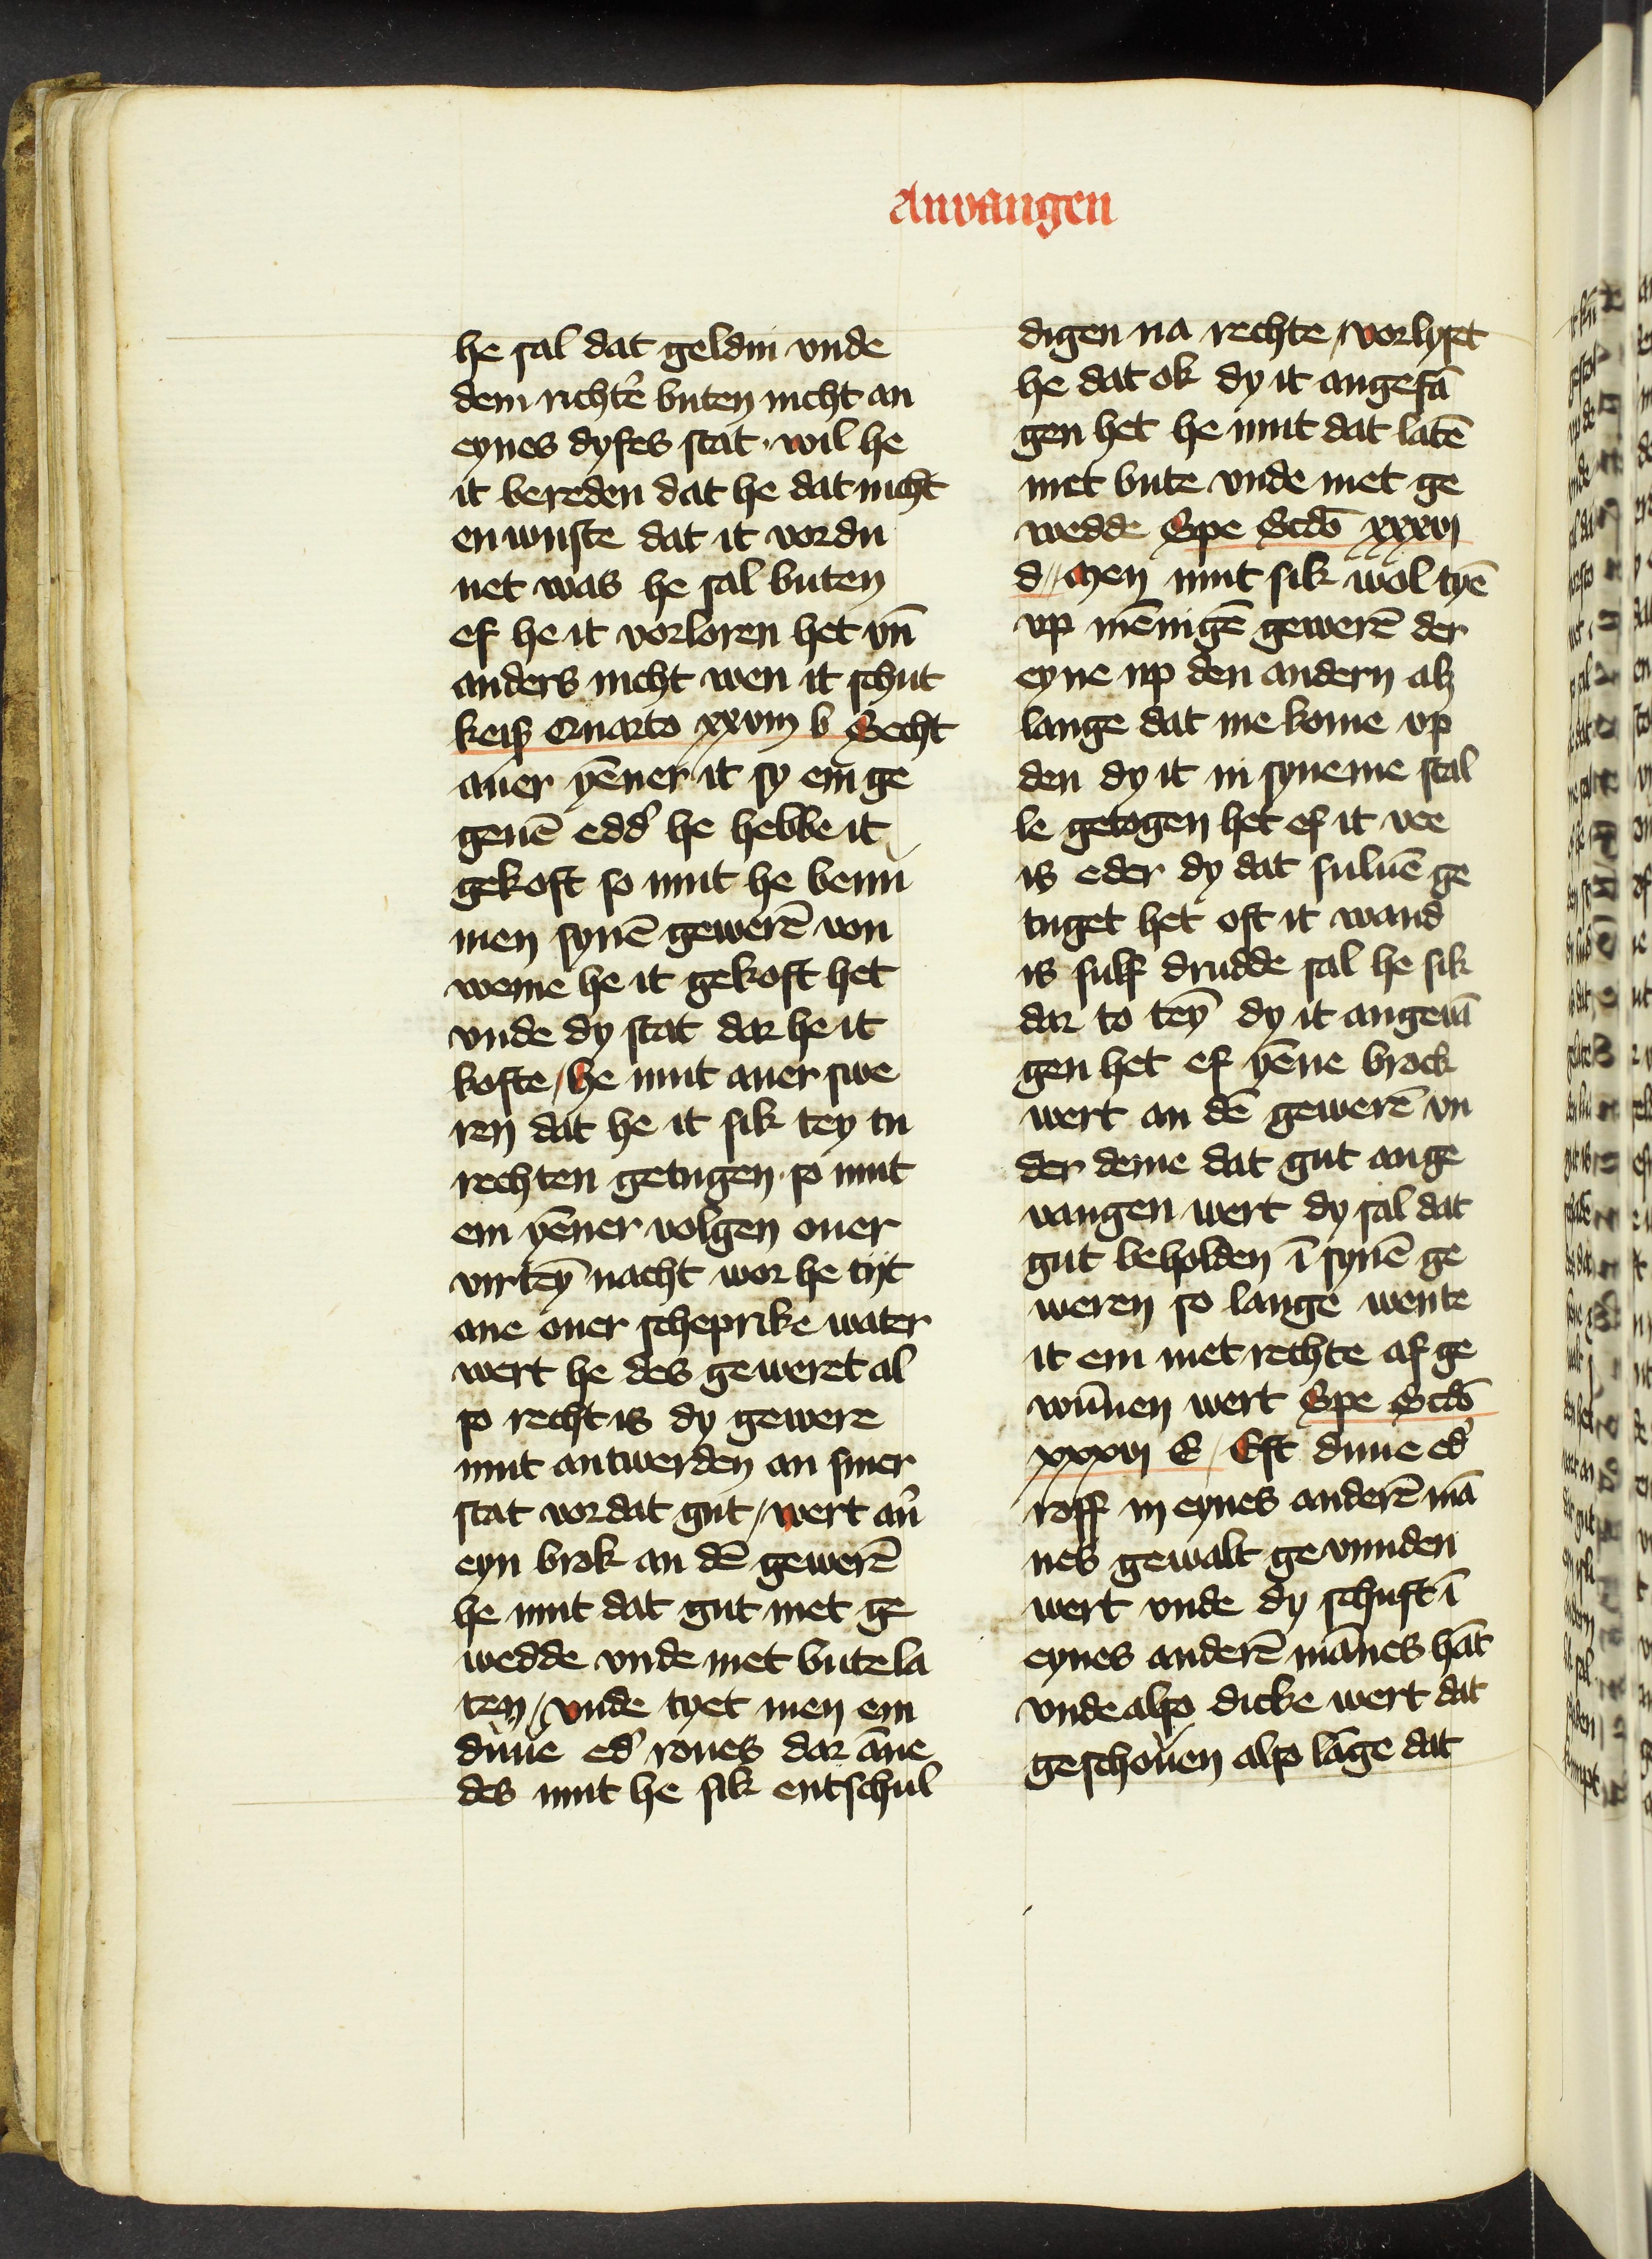 Anvangen
he sal dat geldin vnde
dem richtẽ buten nicht an
eynes dyfes stat · wil he
it bereden dat he dat nicht
en wuste dat it vordu
uet was he sal buten
ef he it vorloren het vn̄
anders nicht wen it schut
keiß Quarto xxviij b Secht
auer yēner it sy em ge
geuē edd' he hebbe it
gekoft so mut he benū
men synē gewerē von
weme he it gekoft het
vnde dy stat dar he it
kofte / he mut auer swe
ren dat he it sik tey tu
rechten getugen · so mut
em yēner volgen ouer
virteȳ nacht wor he tijt
ane ouer scheprike water
wert he des geweret al
so recht is dy gewere
mut antwerden an siner
stat vor dat gut / wert au'
eyn brok an dē gewerē
he mut dat gut met ge
wedde vnde met bute la
ten / vnde tyet men em
duue ed' roues dar āne
des mut he sik entschul
digen na rechte / vorlyset
he dat ok dy it angefā
gen het he mut dat latē
met bute vnde met ge
wedde Spe Scdō xxxvj
d // Men mut sik wol tyē
vp mēnigē gewerē der
eyne up den andern alz
lange dat me kome vp
den dy it in syneme stal
le getogen het ef it vee
is eder dy dat suluē ge
tuget het oft it wand
is sulf drudde sal he sik
dar to teȳ dy it angeuā
gen het ef yēne brock
wert an dē gewerē vn
der deme dat gut ange
vangen wert dy sal dat
gut beholden ī synē ge
weren so lange wente
it em met rechte af ge
wūnen wert Spe Scdō
xxxvj E / Eft duue ed'
roff in eynes anderē mā
nes gewalt gevunden
wert vnde dy schuft ī
eynes anderē mānes hāt
vnde also dicke wert dat
geschouen also lāge dat